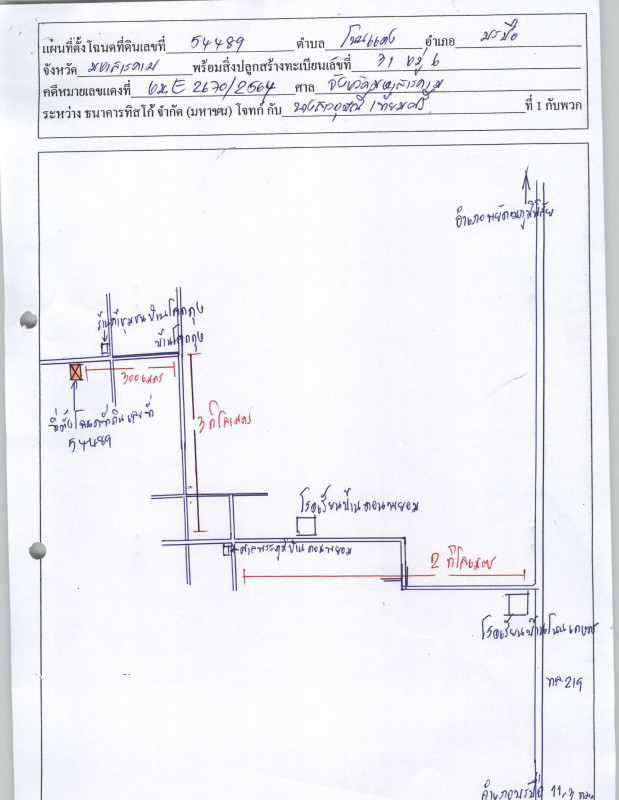 แผนที่ตั้งโฉนดที่ดินเลขที่ 54489 ตำบล โนนแดง อำเภอ บรบือ
จังหวัด มหาสารคาม พร้อมสิ่งปลูกสร้างทะเบียนเลขที่ 31 หมู่ 6
คดีหมายเลขแดงที่ ผบE 2670/2564 ศาล จังหวัดมหาสารคาม
ระหว่าง ธนาคารทิสโก้ จำกัด (มหาชน) โจทก์ กับ ที่ 1 กับพวก
อำเภอพยัคฆภูมิพิสัย
ร้านค้าชุมชนบ้านโคกกุง
บ้านโคกกุง
300 เมตร
ที่ตั้งโฉนดที่ดินเลขที่
54489
3 กิโลเมตร
โรงเรียนบ้านดอนพยอม
ศาลพระภูมิบ้านดอนพยอม
2 กิโลเมตร
โรงเรียนบ้านโนนเกษตร
ทล 219
อำเภอบรบือ 11.3 กม